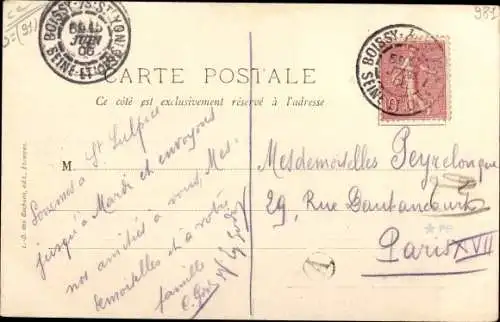 931
BOISSY-LA-ST YON
JUIN
05
SEINE-ET-OISE
CARTE POSTALE
Ce côté est exclusivement réservé à l'adresse
M
Sommes à St Sulpice
jusqu'à Mardi et envoyons
nos amitiés à vous, Mes-
demoiselles et à votre
famille
Mesdemoiselles Peyrelongue
29, Rue Dautancourt
Paris XVII
A